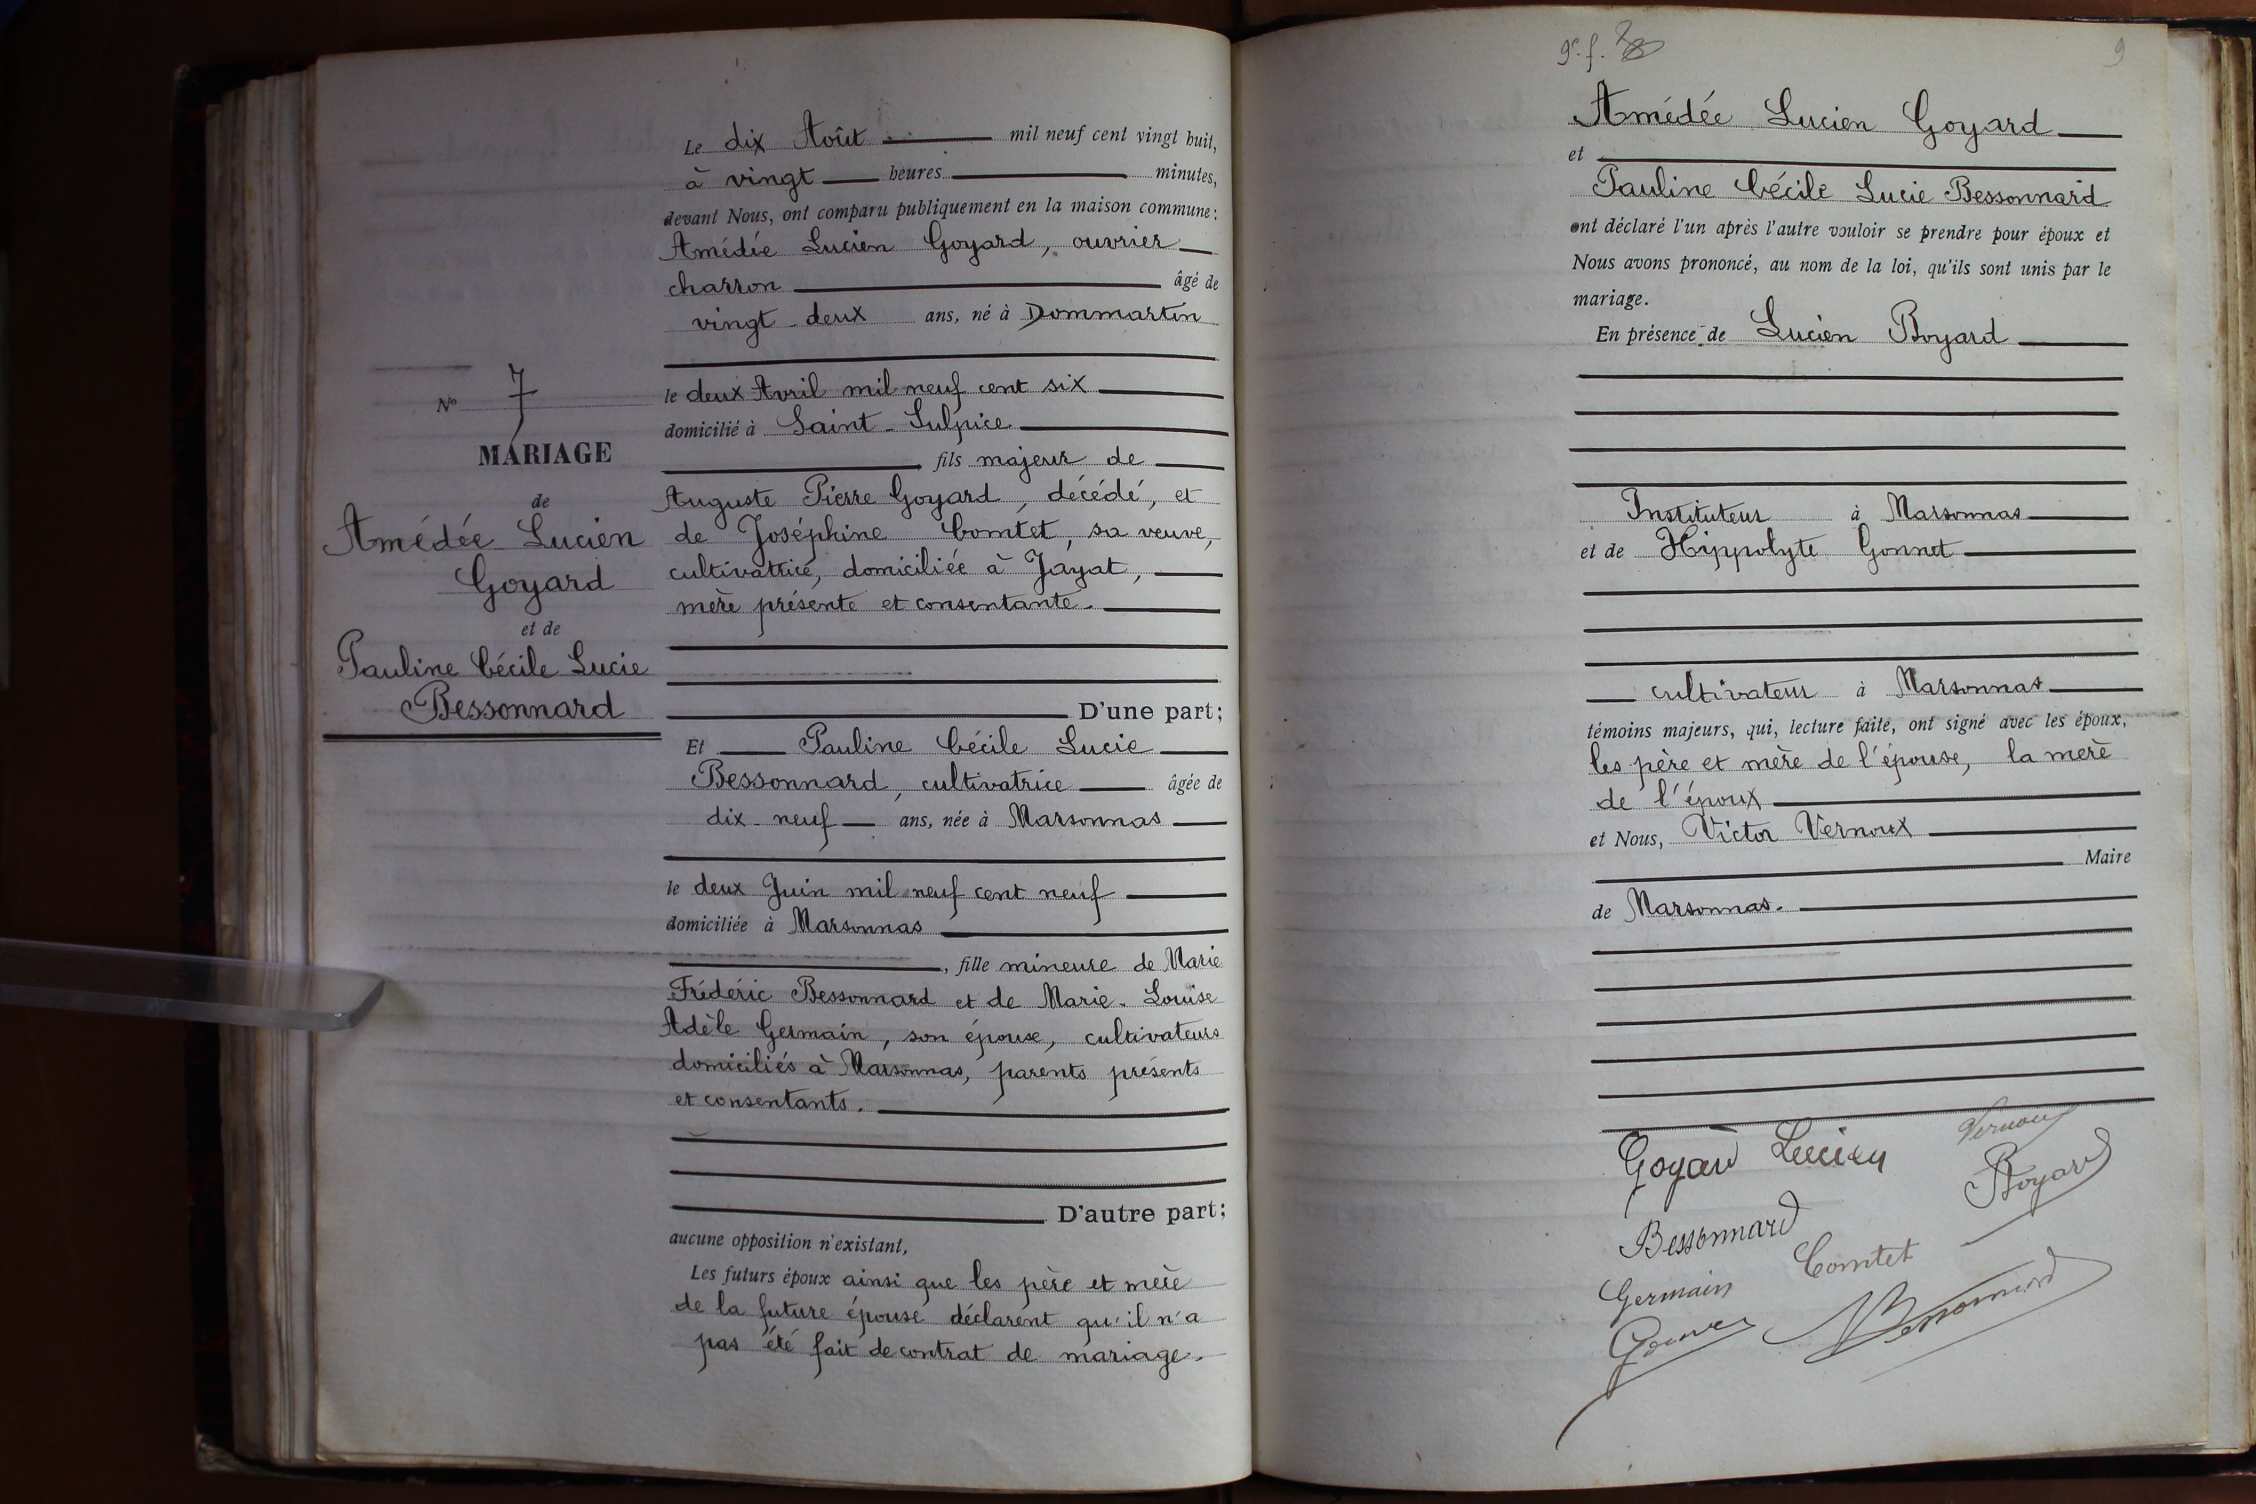 Le dix Août mil neuf cent vingt huit,
à vingt heures minutes,
devant Nous, ont comparu publiquement en la maison commune :
Amédée Lucien Goyard, ouvrier
charron âgé de
vingt-deux ans, né à Dommartin
le deux Avril mil neuf cent six
domicilié à Saint-Sulpice
fils majeur de
Auguste Pierre Goyard, décédé, et
de Joséphine Comtet, sa veuve,
cultivatrice, domiciliée à Jayat,
mère présente et consentante.
D'une part;
Nº 7
MARIAGE
de
Amédée Lucien
Goyard
et de
Pauline Cécile Lucie
Bessonnard
Et Pauline Cécile Lucie
Bessonnard, cultivatrice âgée de
dix-neuf ans, née à Marsonnas
le deux Juin mil neuf cent neuf
domiciliée à Marsonnas
, fille mineure de Marie
Frédéric Bessonnard et de Marie-Louise
Adèle Germain, son épouse, cultivateurs
domiciliés à Marsonnas, parents présents
et consentants.
D'autre part;
aucune opposition n'existant,
Les futurs époux ainsi que les père et mère
de la future épouse déclarent qu'il n'a
pas été fait de contrat de mariage.
9e. f.
9
Amédée Lucien Goyard
et
Pauline Cécile Lucie Bessonnard
ont déclaré l'un après l'autre vouloir se prendre pour époux et
Nous avons prononcé, au nom de la loi, qu'ils sont unis par le
mariage.
En présence de Lucien Boyard
Instituteur à Marsonnas
et de Hippolyte Gonnet
cultivateur à Marsonnas
témoins majeurs, qui, lecture faite, ont signé avec les époux,
les père et mère de l'épouse, la mère
de l'époux
et Nous, Victor Vernoux
Maire
de Marsonnas.
Goyard Lucien
Vernoux
Boyard
Bessonnard
Comtet
Germain
Bessonnard